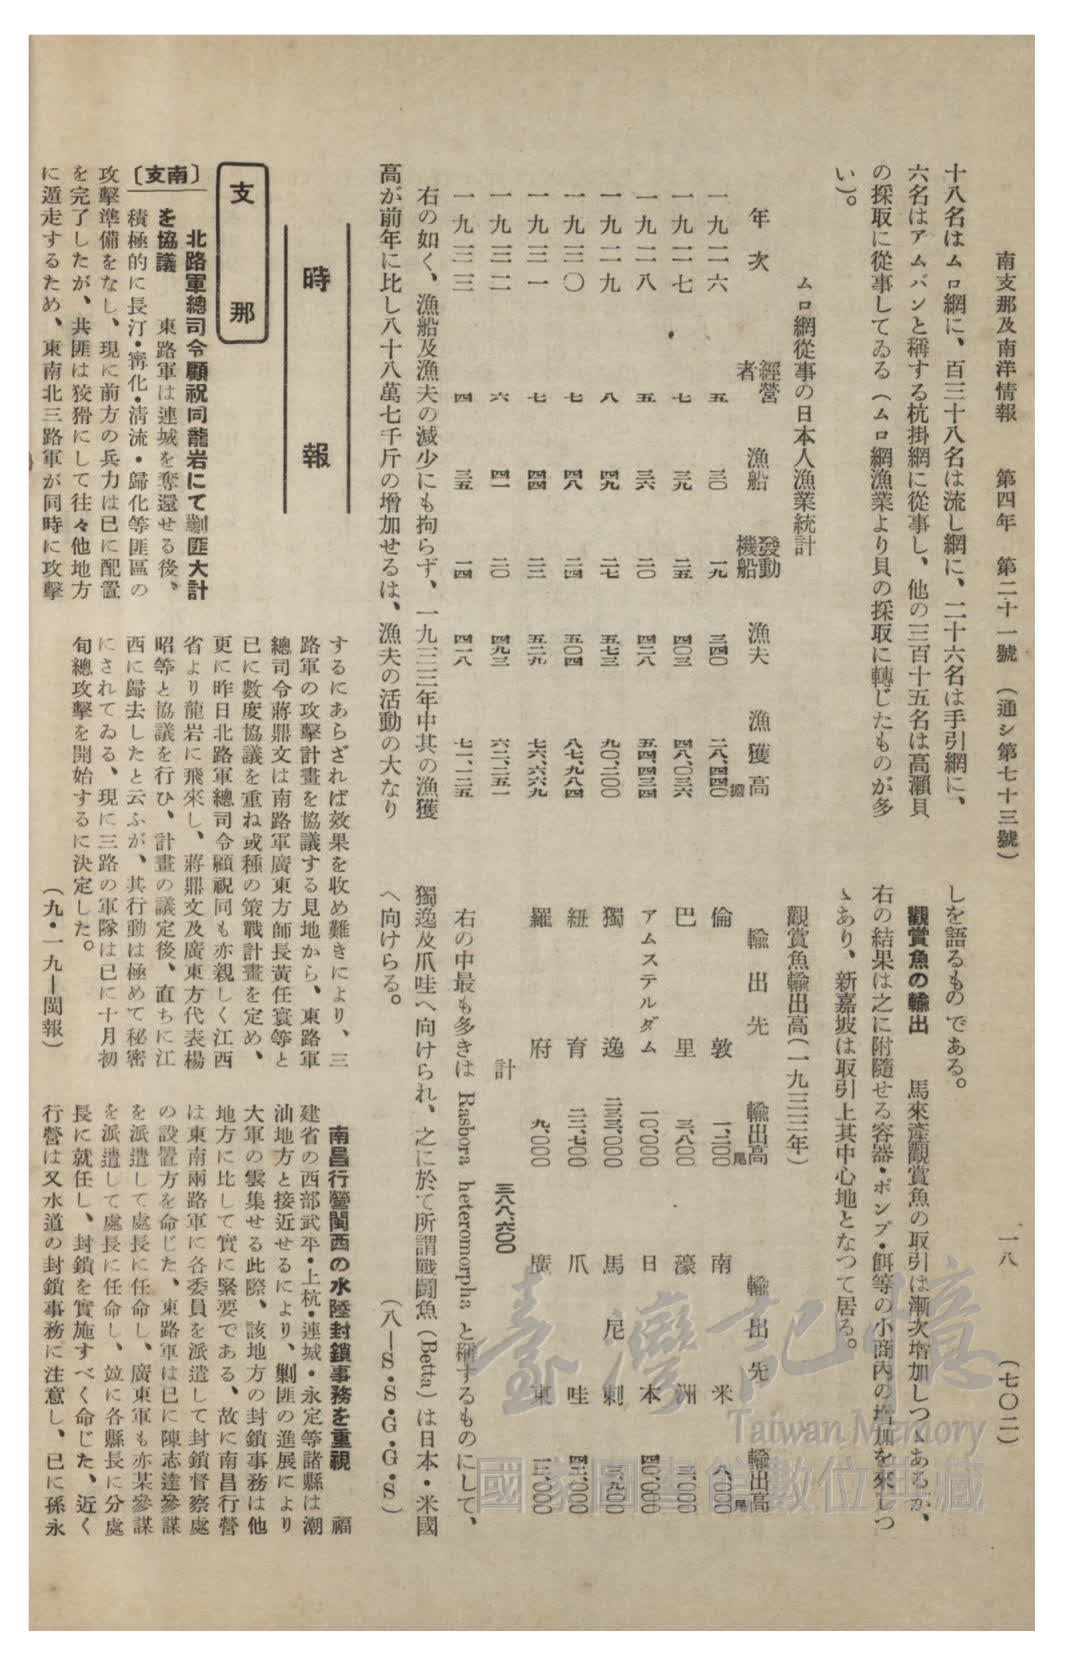 南支那及南洋情報　第四年　第二十一號　(通シ第七十三號)　一八　(七〇二)
十八名はムロ網に、百三十八名は流し網に、二十六名は手引網に、
六名はアムバンと稱する杭掛網に從事し、他の三百十五名は高瀨貝
の採取に從事してゐる(ムロ網漁業より貝の採取に轉じたものが多
い)。
ムロ網從事の日本人漁業統計
年次　經營者　漁船　發動機船　漁夫　漁獲高
一九二六　五　三〇　一九　三四〇　二八、四四〇擔
一九二七　七　三九　二五　四〇三　四八、〇三六
一九二八　五　三六　二〇　四二八　五四、四三四
一九二九　八　四九　二七　五七三　九〇、二〇〇
一九三〇　七　四八　二四　五〇四　八七、九八四
一九三一　七　四四　二三　五二九　七六、六六九
一九三二　六　四一　二〇　四九三　六二、二五一
一九三三　四　三五　一四　四一八　七一、一二五
右の如く、漁船及漁夫の減少にも拘らず、一九三三年中其の漁獲
高が前年に比し八十八萬七千斤の增加せるは、漁夫の活動の大なり
しを語るものである。
觀賞魚の輸出　馬來產觀賞魚の取引は漸次增加しつゝあるが、
右の結果は之に附隨せる容器・ポンプ・餌等の小商內の增加を來しつ
ゝあり、新嘉坡は取引上其中心地となつて居る。
觀賞魚輸出高(一九三三年)
輸出先　輸出高　輸出先　輸出高
倫敦　一、二〇〇尾　南米　八、〇〇〇尾
巴里　三、八〇〇　濠洲　三、〇〇〇
アムステルダム　一〇、〇〇〇　日本　四〇、〇〇〇
獨逸　二三三、〇〇〇　馬尼剌　三、九〇〇
紐育　二二、七〇〇　爪哇　四三、〇〇〇
羅府　九、〇〇〇　廣東　三、〇〇〇
計　三八八、六〇〇
右の中最も多きは Rasbora heteromorpha と稱するものにして、
獨逸及爪哇へ向けられ、之に於て所謂戰鬪魚(Betta)は日本・米國
へ向けらる。　(八—S・S・G・G・S)
時報
支那
〔南支〕　北路軍總司令顧祝同龍岩にて剿匪大計
を協議　東路軍は連城を奪還せる後、
積極的に長汀・寗化・淸流・歸化等匪區の
攻擊準備をなし、現に前方の兵力は已に配置
を完了したが、共匪は狡猾にして往々他地方
に遁走するため、東南北三路軍が同時に攻擊
するにあらざれば效果を收め難きにより、三
路軍の攻擊計畫を協議する見地から、東路軍
總司令蔣鼎文は南路軍廣東方師長黃任寰等と
已に數度協議を重ね或種の策戰計畫を定め、
更に昨日北路軍總司令顧祝同も亦親しく江西
省より龍岩に飛來し、蔣鼎文及廣東方代表楊
昭等と協議を行ひ、計畫の議定後、直ちに江
西に歸去したと云ふが、其行動は極めて秘密
にされてゐる、現に三路の軍隊は已に十月初
旬總攻擊を開始するに決定した。
(九・一九—閩報)
南昌行營閩西の水陸封鎖事務を重視　福
建省の西部武平・上杭・連城・永定等諸縣は潮
汕地方と接近せるにより、剿匪の進展により
大軍の雲集せる此際、該地方の封鎖事務は他
地方に比して實に緊要である、故に南昌行營
は東南兩路軍に各委員を派遣して封鎖督察處
の設置方を命じた、東路軍は已に陳志達參謀
を派遣して處長に任命し、廣東軍も亦某參謀
を派遣して處長に任命し、竝に各縣長に分處
長に就任し、封鎖を實施すべく命じた、近く
行營は又水道の封鎖事務に注意し、已に孫永
臺灣記憶
Taiwan Memory
國家圖書館數位典藏